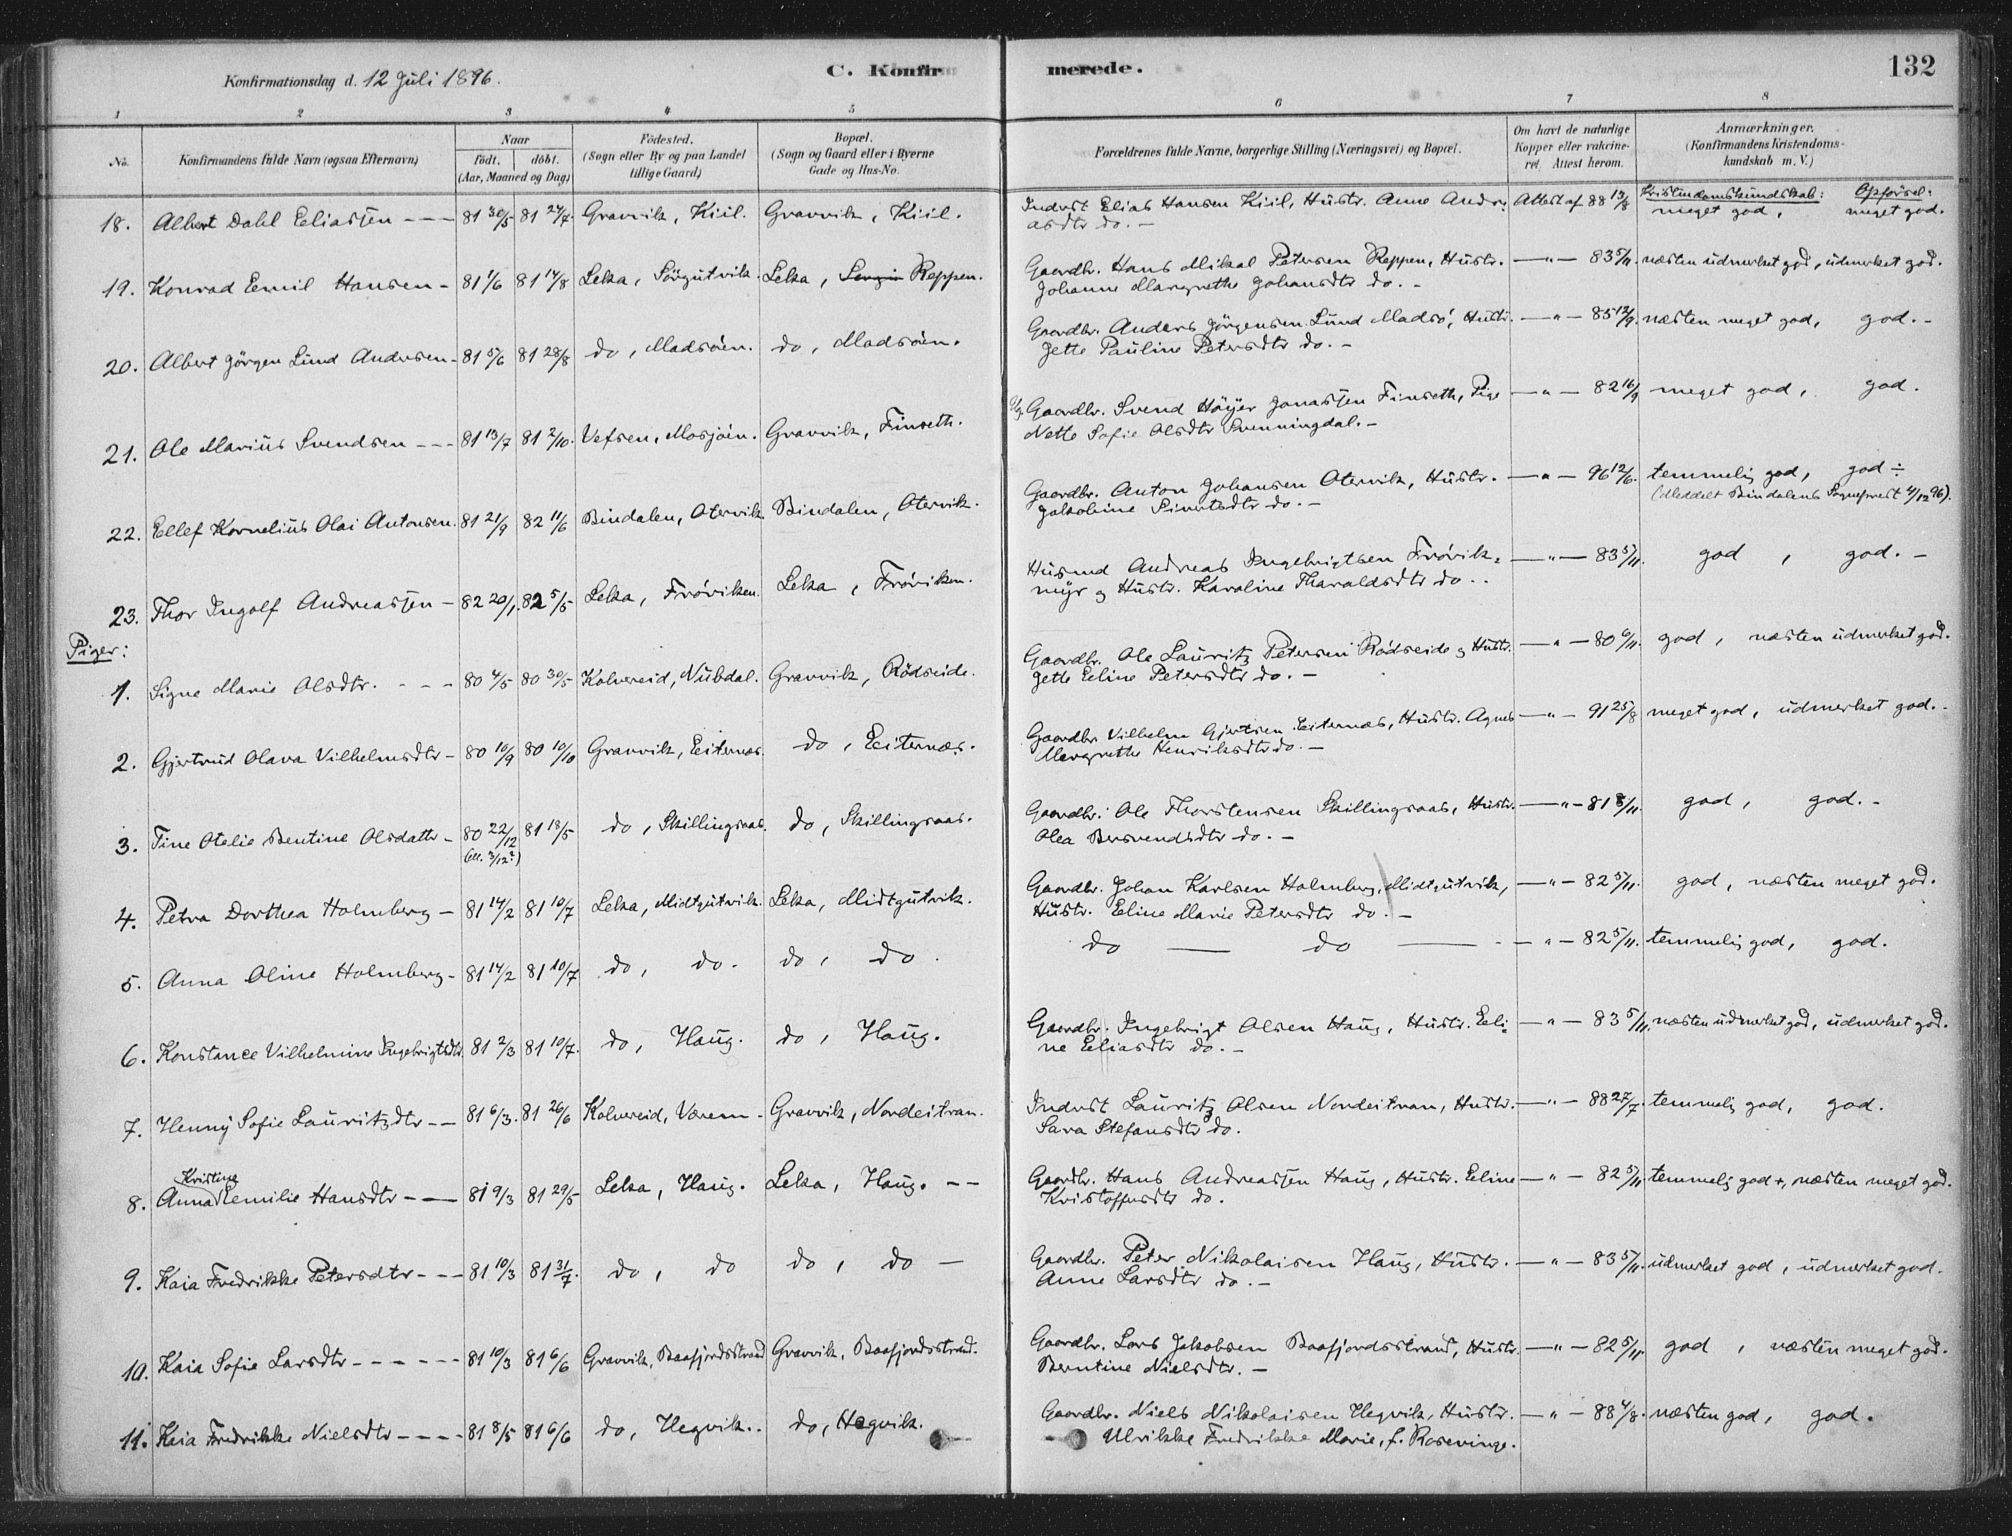 Konfirmationsdag d. 12 Juli 1896.
C. Konfirmerede.
132
1 2 3 4 5 6 7 8
No.
Konfirmandens fulde Navn (ogsaa Efternavn)
Naar
født. døbt.
(Aar, Maaned og Dag)
Fødested.
(Sogn eller By og paa Landet
tillige Gaard)
Bopæl.
(Sogn og Gaard eller i Byerne
Gade og Hus-No.
Forældrenes fulde Navne, borgerlige Stilling (Næringsvei) og Bopæl.
Om havt de naturlige
Kopper eller vakcine-
ret. Attest herom.
Anmærkninger.
(Konfirmandens Kristendoms-
kundskab m. V.)
Kristendomskundskab: Opførsel:
18. Albert Dahl Eeliassen --- 81 30/5 81 24/7 Gravvik, Kiil. Gravvik, Kiil. Inderst Elias Hansen Kiil, Hustr. Anne Andre- Attest af 88 13/8 meget god, meget god.
asdtr do. -
19. Konrad Eemil Hansen - 81 1/6 81 14/8 Leka, Sørgutvik. Leka, Reppen. Gaardbr. Hans Mikal Petersen Reppen, Hustr. -"- 83 5/11. næsten udmerket god, udmerket god.
Johanne Margrethe Johansdtr do. -
20. Albert Jørgen Lund Andersen - 81 5/6 81 28/8 do, Madsøen. do, Madsøen. Gaardbr. Anders Jørgensen Lund Madsø, Hustr. -"- 85 12/9 næsten meget god, god. -
Jette Pauline Petersdtr do. -
21. Ole Marius Svendsen --- 81 13/7 81 2/10. Vefsen, Mosjøen. Gravvik, Finseth. Ug. Gaardbr. Svend Høyer Jonassen Finseth, Pige -"- 82 16/9 meget god, god.
Nette Sofie Olsdtr Svenningdal. -
22. Ellef Kornelius Olai Antonsen. 81 21/9 82 11/6 Bindalen, Otervik. Bindalen, Otervik. Gaardbr. Anton Johansen Otervik, Hustr. -"- 96 12/6. temmelig god, god ÷
Jakobine Sivertsdtr do. - (Meddelt Bindalens Sogneprest 4/12 96).
23. Thor Ingolf Andreassen - 82 20/1. 82 5/5 Leka, Frøviken. Leka, Frøviken. Husmd Andreas Ingebrigtsen Frøvik- -"- 83 5/11. god, god. -
myr og Hustr. Karoline Tharaldsdtr do. .
Piger:
1. Signe Marie Olsdtr. --- 80 4/5 80 30/5 Kolvereid, Nubdal. Gravvik, Rødseide. Gaardbr. Ole Lauritz Petersen Rødseide og Hustr. -"- 80 6/11. god, næsten udmerket god.
Jette Eeline Petersdtr do. -
2. Gjertrud Olava Vilhelmsdtr - 80 10/9 80 10/10 Gravvik, Eiternæs. do, Eeiternæs. Gaardbr Vilhelm Gjertsen Eeiternæs, Hustr. Agnes -"- 91 25/8 meget god, udmerket god. -
Margrethe Henriksdtr do. -
3. Tine Otelie Bentine Olsdattr - 80 22/12 81 18/5 do, Skillingsaas. do, Skillingsaas. Gaardbr. Ole Thorstensen Skillingsaas, Hustr. -"- 81 8/11. god, god. -
(ell. 3/12?) Olea Bersvendsdtr do. -
4. Petra Dorthea Holmberg - 81 14/2 81 10/7 Leka, Midtgutvik. Leka, Midtgutvik. Gaardbr. Johan Karlsen Holmberg, Midtgutvik, -"- 82 5/11. god, næsten meget god.
Hustr. Eeline Marie Petersdtr do. -
5. Anna Oline Holmberg - 81 14/2 81 10/7 do, do. do, do. do — do — -"- 82 5/11. temmelig god, god.
6. Konstance Vilhelmine Ingebrigtsdtr. 81 2/3 81 10/7. do, Haug. do, Haug. Gaardbr. Ingebrigt Olsen Haug, Hustr. Eeli- -"- 83 5/11. næsten udmerket god, udmerket god.
ne Eeliasdtr do. -
7. Henny Sofie Lauritzdtr -- 81 6/3. 81 26/6 Kolvereid, Værem - Gravvik, Nordeitran. Inderst Lauritz Olsen Nordeitran, Hustr. -"- 88 27/7. temmelig god, god.
Sara Stefansdtr do.
Kristine
8. Anna Eemilie Hansdtr --- 81 9/3 81 29/5 Leka, Haug. Leka, Haug. -- Gaardbr. Hans Andreassen Haug, Hustr. Eeline -"- 82 5/11 temmelig god +, næsten meget god.
Kristoffersdtr do.
9. Kaia Fredrikke Petersdtr --- 81 10/3 81 31/7. do, do do, do - Gaardbr. Peter Nikolaisen Haug, Hustr. -"- 83 5/11. udmerket god, udmerket god.
Anne Larsdtr do. -
10. Kaia Sofie Larsdtr ------ 81 10/3 81 6/6 Gravvik, Baafjordsstrand Gravvik, Baafjordsstrand. Gaardbr. Lars Jakobsen Baafjordsstrand, Hustr. -"- 82 5/11 god, næsten meget god.
Berntine Nielsdtr. -
11. Kaia Fredrikke Nielsdtr ---- 81 8/5 81 6/6 do, Hegvik. do, Hegvik. Gaardbr. Niels Nikolaisen Hegvik, Hustr. -"- 88 4/8. næsten god, god.
Ulrikke Fredrikke Marie, f. Rosevinge.